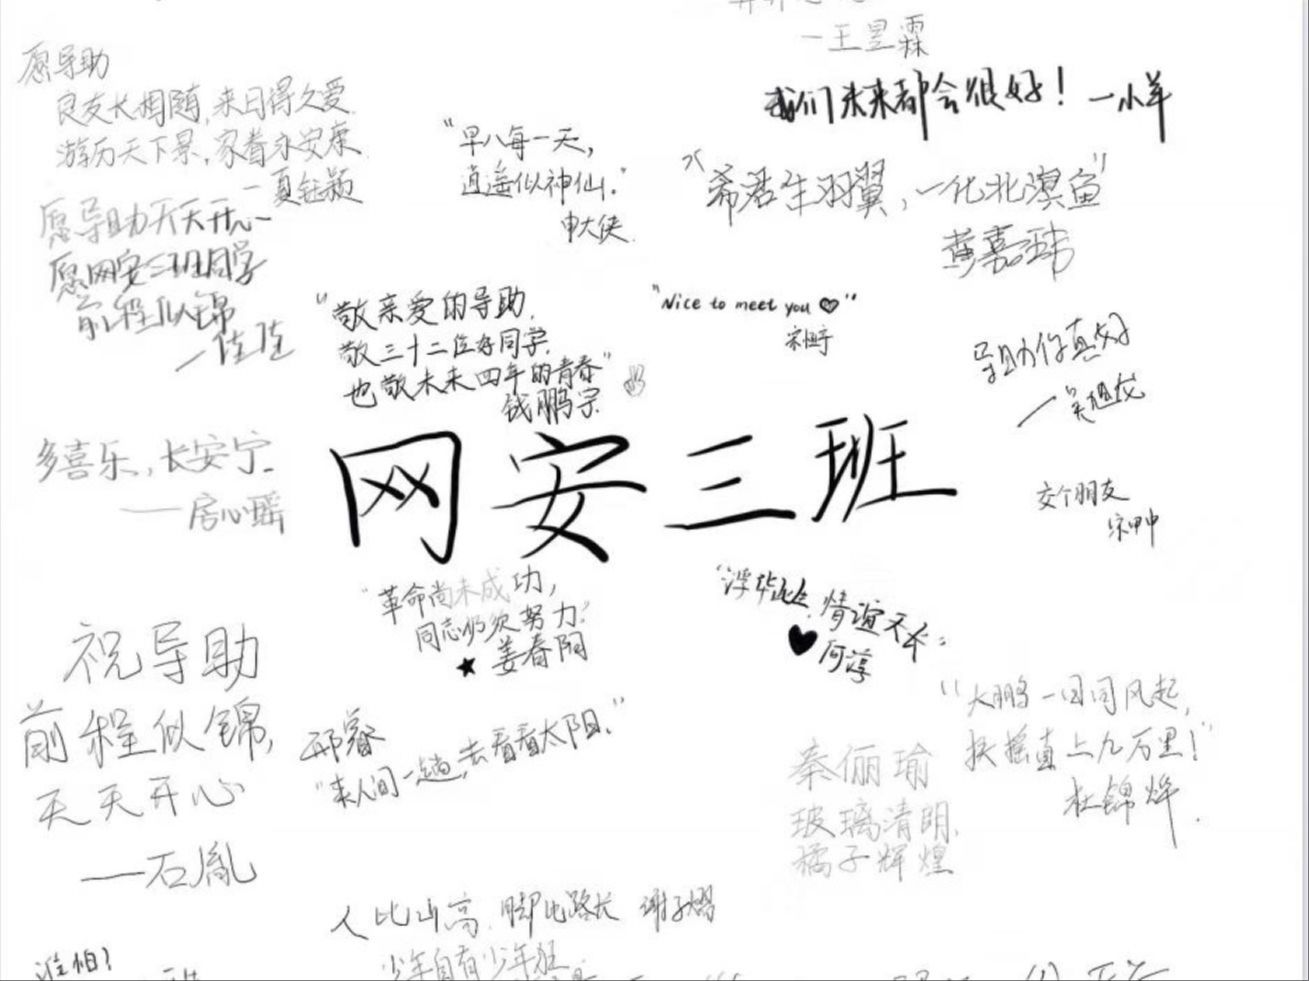 一王昱霖
我们未来都会很好！一小羊
愿导助
良友长相随，来日得久爱.
游历天下景，家眷永安康.
一夏钰颖
"早八每一天，
逍遥似神仙."
申大侠
"希君生羽翼，一化北溟鱼"
黄嘉玮
愿导助天天开心
愿网安三班同学
前程似锦
"敬亲爱的导助，
敬三十二位好同学，
也敬未来四年的青春"
钱鹏宗
"Nice to meet you ♥"
导助你真好
一吴旭龙
多喜乐，长安宁
——房心瑶
网安三班
交个朋友
宋甲申
"革命尚未成功，
同志仍须努力"
★ 姜春阳
情谊天长"
♥ 何淳
祝导助
前程似锦，
天天开心
——石胤
邢睿
"来人间一趟，去看看太阳."
"大鹏一日同风起，
扶摇直上九万里！"
杜锦烨.
秦俪瑜
玻璃清明，
橘子辉煌
人比山高 脚比路长 谢子熠
少年自有少年狂
谁怕？